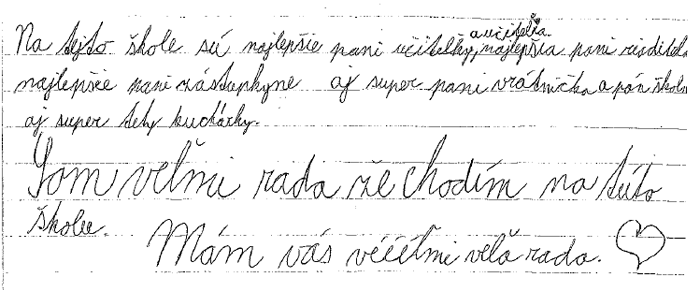 Na tejto škole sú najlepšie pani učiteľky, a učitelia najlepšia pani riaditeľ
najlepšie pani zástupkyne aj super pani vrátnička a pán školn
aj super tety kuchárky.
Som veľmi rada že chodím na túto
školu.
Mám vás vééélmi veľa rada.